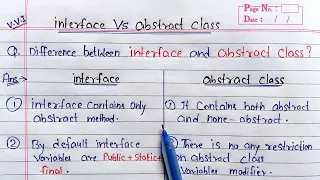 V.V.I
interface Vs Abstract Class
Page No. :
Date : / /
Q. Difference between interface and abstract class?
Ans→
interface
Abstract Class
① interface contains only
abstract method.
① It Contains both abstract
and none-abstract.
② By default interface
variables are Public+Static+
final.
② There is no any restriction
on abstract class
Variables modifier.